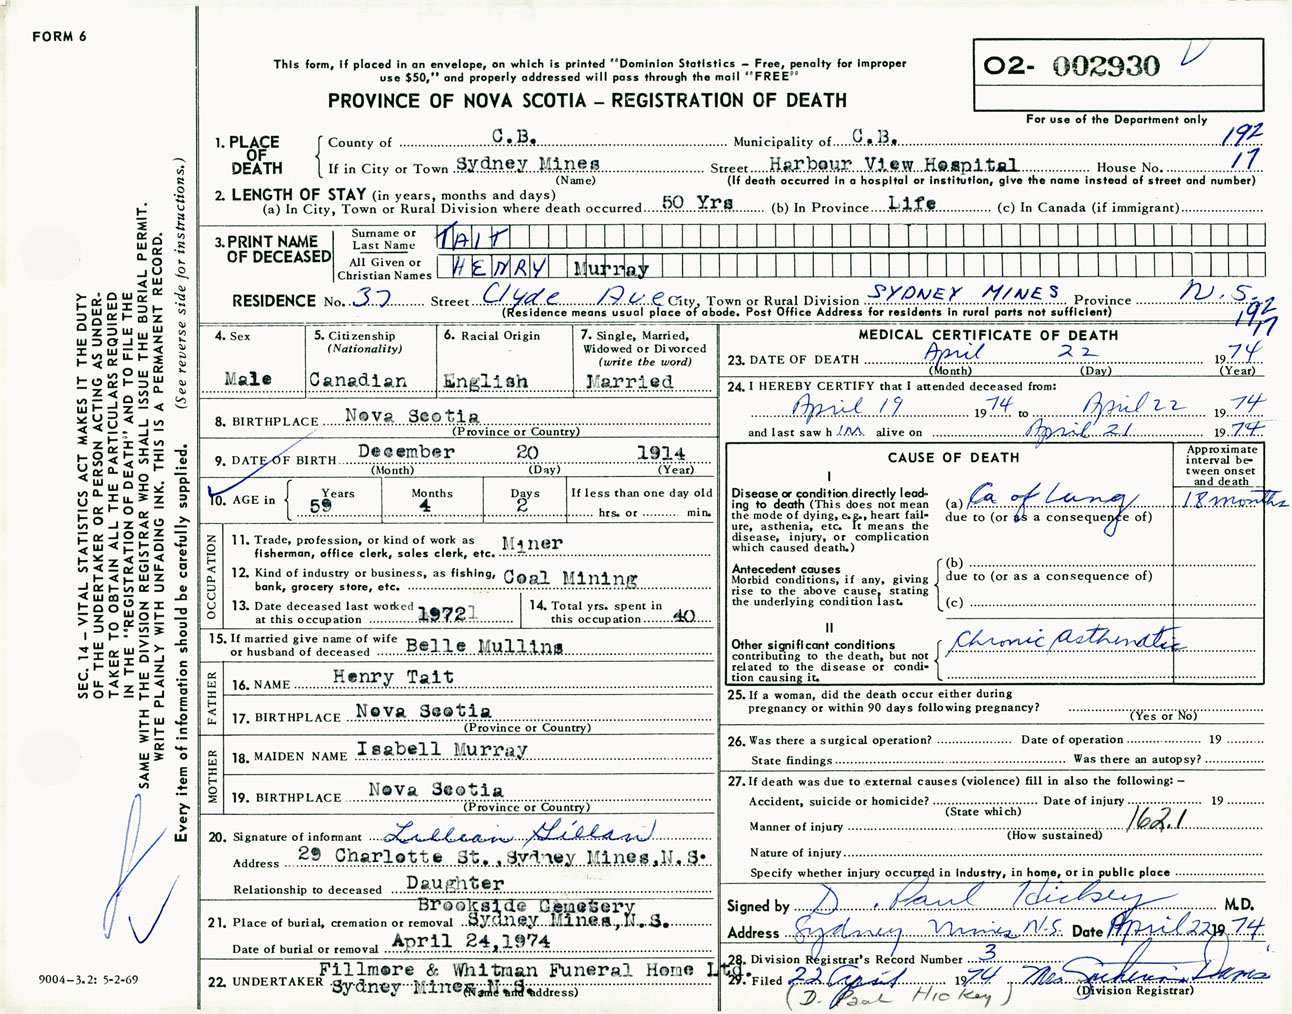 FORM 6
This form, if placed in an envelope, on which is printed "Dominion Statistics – Free, penalty for improper
use $50," and properly addressed will pass through the mail "FREE"
PROVINCE OF NOVA SCOTIA – REGISTRATION OF DEATH
02- 002930
For use of the Department only
1. PLACE OF DEATH
County of C.B. Municipality of C.B. 192
If in City or Town Sydney Mines Street Harbour View Hospital House No. 17
(Name) (If death occurred in a hospital or institution, give the name instead of street and number)
2. LENGTH OF STAY (in years, months and days)
(a) In City, Town or Rural Division where death occurred 50 Yrs (b) In Province Life (c) In Canada (if immigrant)
3. PRINT NAME OF DECEASED
Surname or Last Name TAIT
All Given or Christian Names HENRY Murray
RESIDENCE No. 37 Street Clyde Ave City, Town or Rural Division SYDNEY MINES Province N.S.
(Residence means usual place of abode. Post Office Address for residents in rural parts not sufficient)
192
17
4. Sex
Male
5. Citizenship
(Nationality)
Canadian
6. Racial Origin
English
7. Single, Married,
Widowed or Divorced
(write the word)
Married
8. BIRTHPLACE Nova Scotia
(Province or Country)
9. DATE OF BIRTH December 20 1914
(Month) (Day) (Year)
10. AGE in
Years Months Days If less than one day old
59 4 2 hrs. or min.
OCCUPATION
11. Trade, profession, or kind of work as
fisherman, office clerk, sales clerk, etc. Miner
12. Kind of industry or business, as fishing,
bank, grocery store, etc. Coal Mining
13. Date deceased last worked
at this occupation 1972
14. Total yrs. spent in
this occupation 40
15. If married give name of wife
or husband of deceased Belle Mullins
FATHER
16. NAME Henry Tait
17. BIRTHPLACE Nova Scotia
(Province or Country)
MOTHER
18. MAIDEN NAME Isabell Murray
19. BIRTHPLACE Nova Scotia
(Province or Country)
20. Signature of informant Lillian Gillan
Address 29 Charlotte St., Sydney Mines, N.S.
Relationship to deceased Daughter
Brookside Cemetery
21. Place of burial, cremation or removal Sydney Mines, N.S.
Date of burial or removal April 24, 1974
Fillmore & Whitman Funeral Home Ltd.
22. UNDERTAKER Sydney Mines N.S.
(Name and address)
MEDICAL CERTIFICATE OF DEATH
23. DATE OF DEATH April 22 1974
(Month) (Day) (Year)
24. I HEREBY CERTIFY that I attended deceased from:
April 19 1974 to April 22 1974
and last saw h im alive on April 21 1974
CAUSE OF DEATH
Approximate
interval be-
tween onset
and death
I
Disease or condition directly lead-
ing to death (This does not mean
the mode of dying, e.g., heart fail-
ure, asthenia, etc. It means the
disease, injury, or complication
which caused death.)
(a) Ca of Lung 18 months
due to (or as a consequence of)
Antecedent causes
Morbid conditions, if any, giving
rise to the above cause, stating
the underlying condition last.
(b)
due to (or as a consequence of)
(c)
II
Other significant conditions
contributing to the death, but not
related to the disease or condi-
tion causing it.
Chronic Asthmatic
25. If a woman, did the death occur either during
pregnancy or within 90 days following pregnancy?
(Yes or No)
26. Was there a surgical operation? Date of operation 19
State findings Was there an autopsy?
27. If death was due to external causes (violence) fill in also the following: –
Accident, suicide or homicide? Date of injury 19
(State which)
Manner of injury 162.1
(How sustained)
Nature of injury
Specify whether injury occurred in industry, in home, or in public place
Signed by D. Paul Hickey M.D.
Address Sydney Mines N.S. Date April 22 1974
28. Division Registrar's Record Number 3
29. Filed 22 April 1974 Mrs
(Division Registrar)
(D. Paul Hickey)
SEC. 14 – VITAL STATISTICS ACT MAKES IT THE DUTY
OF THE UNDERTAKER OR PERSON ACTING AS UNDER-
TAKER TO OBTAIN ALL THE PARTICULARS REQUIRED
IN THE "REGISTRATION OF DEATH" AND TO FILE THE
SAME WITH THE DIVISION REGISTRAR WHO SHALL ISSUE THE BURIAL PERMIT.
WRITE PLAINLY WITH UNFADING INK. THIS IS A PERMANENT RECORD.
Every item of information should be carefully supplied. (See reverse side for instructions.)
9004–3.2: 5-2-69